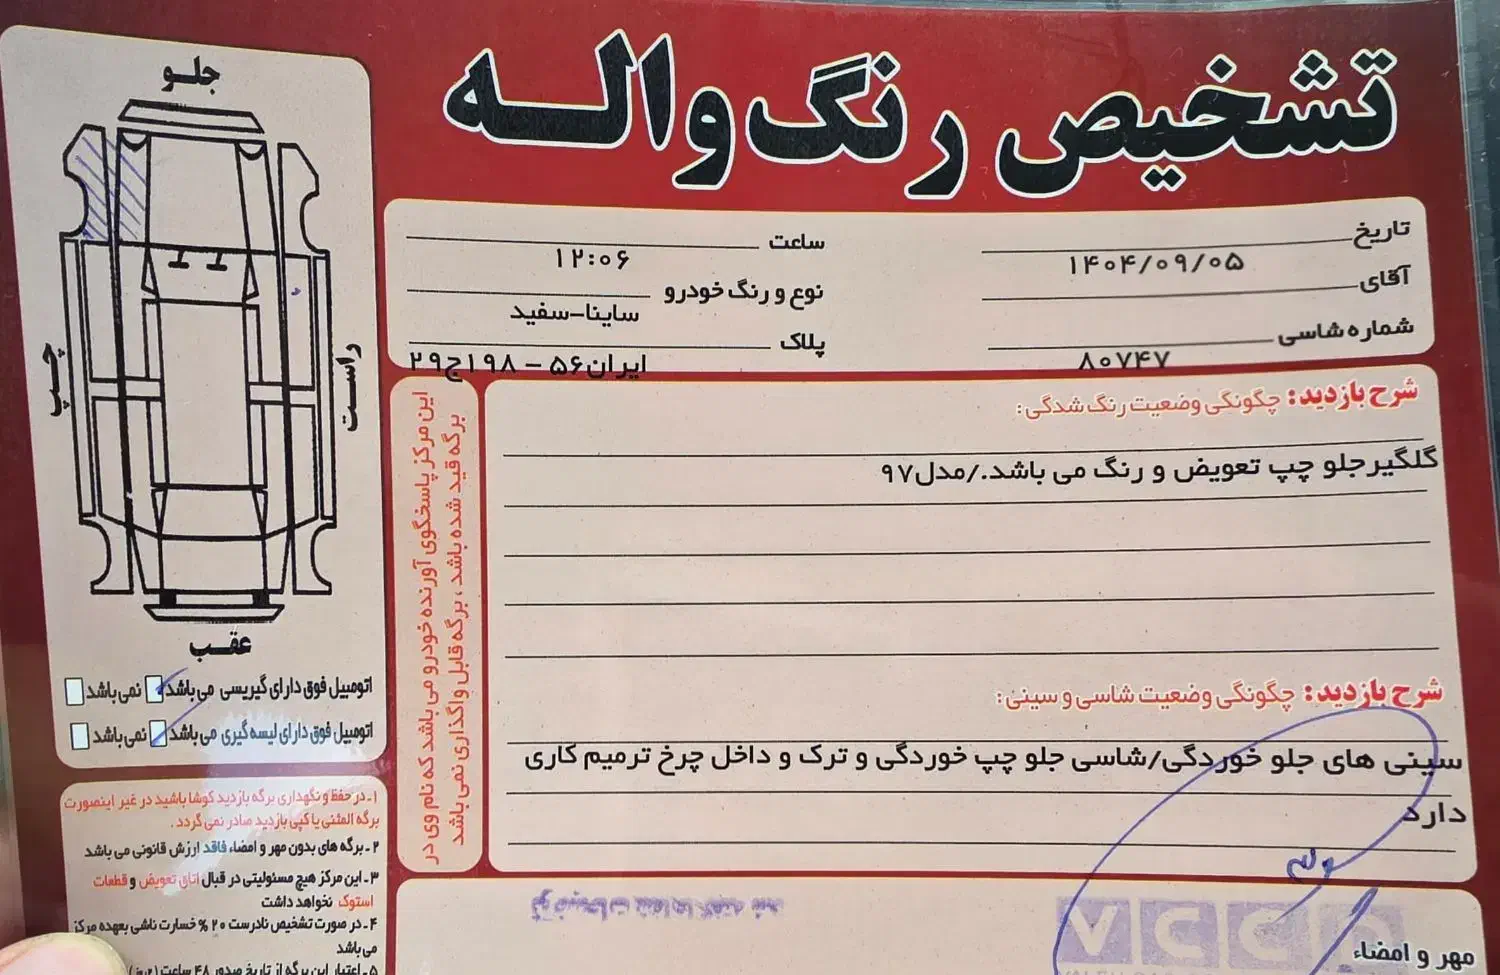 تشخیص رنگ واله
تاریخ ۱۴۰۴/۰۹/۰۵
ساعت ۱۲:۰۶
آقای
نوع و رنگ خودرو ساینا-سفید
شماره شاسی ۸۰۷۴۷
پلاک ایران۵۶ - ۱۹۸ج۲۹
شرح بازدید: چگونگی وضعیت رنگ شدگی:
گلگیرجلو چپ تعویض و رنگ می باشد./مدل۹۷
شرح بازدید: چگونگی وضعیت شاسی و سینی:
سینی های جلو خوردگی/شاسی جلو چپ خوردگی و ترک و داخل چرخ ترمیم کاری
دارد
مهر و امضاء
این مرکز پاسخگوی آورنده خودرو می باشد که نام وی در
برگه قید شده باشد ، برگه قابل واگذاری نمی باشد
جلو
چپ
راست
عقب
اتومبیل فوق دارای گیریسی می باشد نمی باشد
اتومبیل فوق دارای لیسه گیری می باشد نمی باشد
۱-در حفظ و نگهداری برگه بازدید کوشا باشید در غیر اینصورت
برگه المثنی یا کپی بازدید صادر نمی گردد .
۲- برگه های بدون مهر و امضاء فاقد ارزش قانونی می باشد
۳- این مرکز هیچ مسئولیتی در قبال اتاق تعویض و قطعات
استوک نخواهد داشت
۴- در صورت تشخیص نادرست ۲۰ % خسارت ناشی بعهده مرکز
می باشد
۵- اعتبار این برگه از تاریخ صدور ۴۸ ساعت (۲روز)